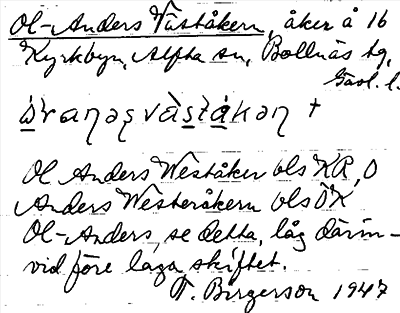 Ol-Anders Väståkern, åker å 16
Kyrkbyn, Alfta sn, Bollnäs tg,
Gävl. l.
Ol Anders Weståker bls KR, O
Anders Westeråkern bls ÖK
Ol-Anders, se detta, låg därin-
vid före laga skiftet.
T. Birgerson 1947